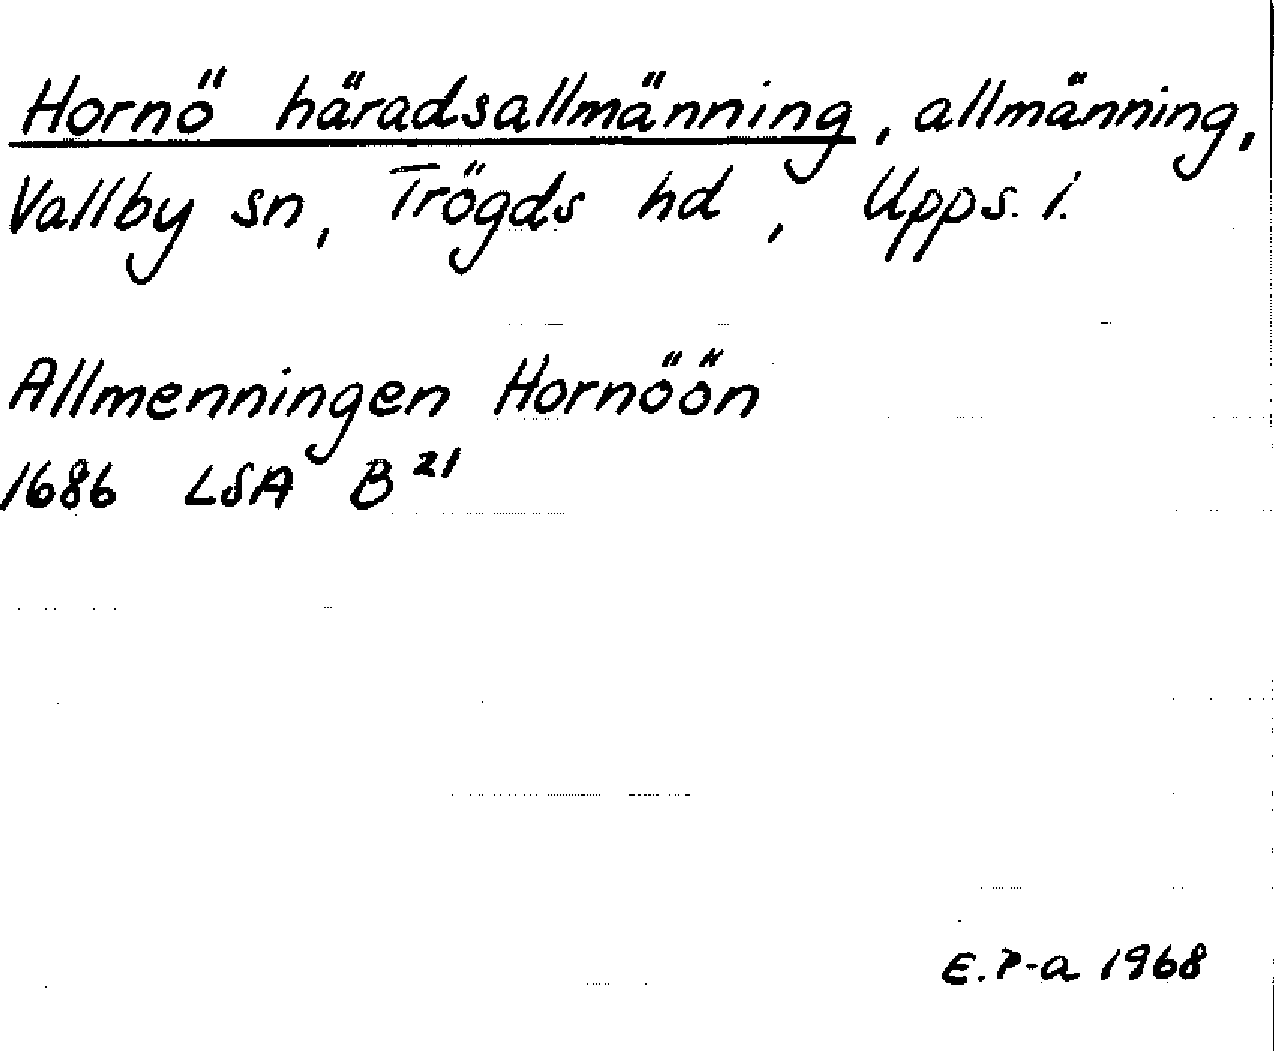 Hornö häradsallmänning, allmänning,
Vallby sn, Trögds hd, Upps. l.
Allmenningen Hornöön
1686 LSA B 21
E. P-a 1968